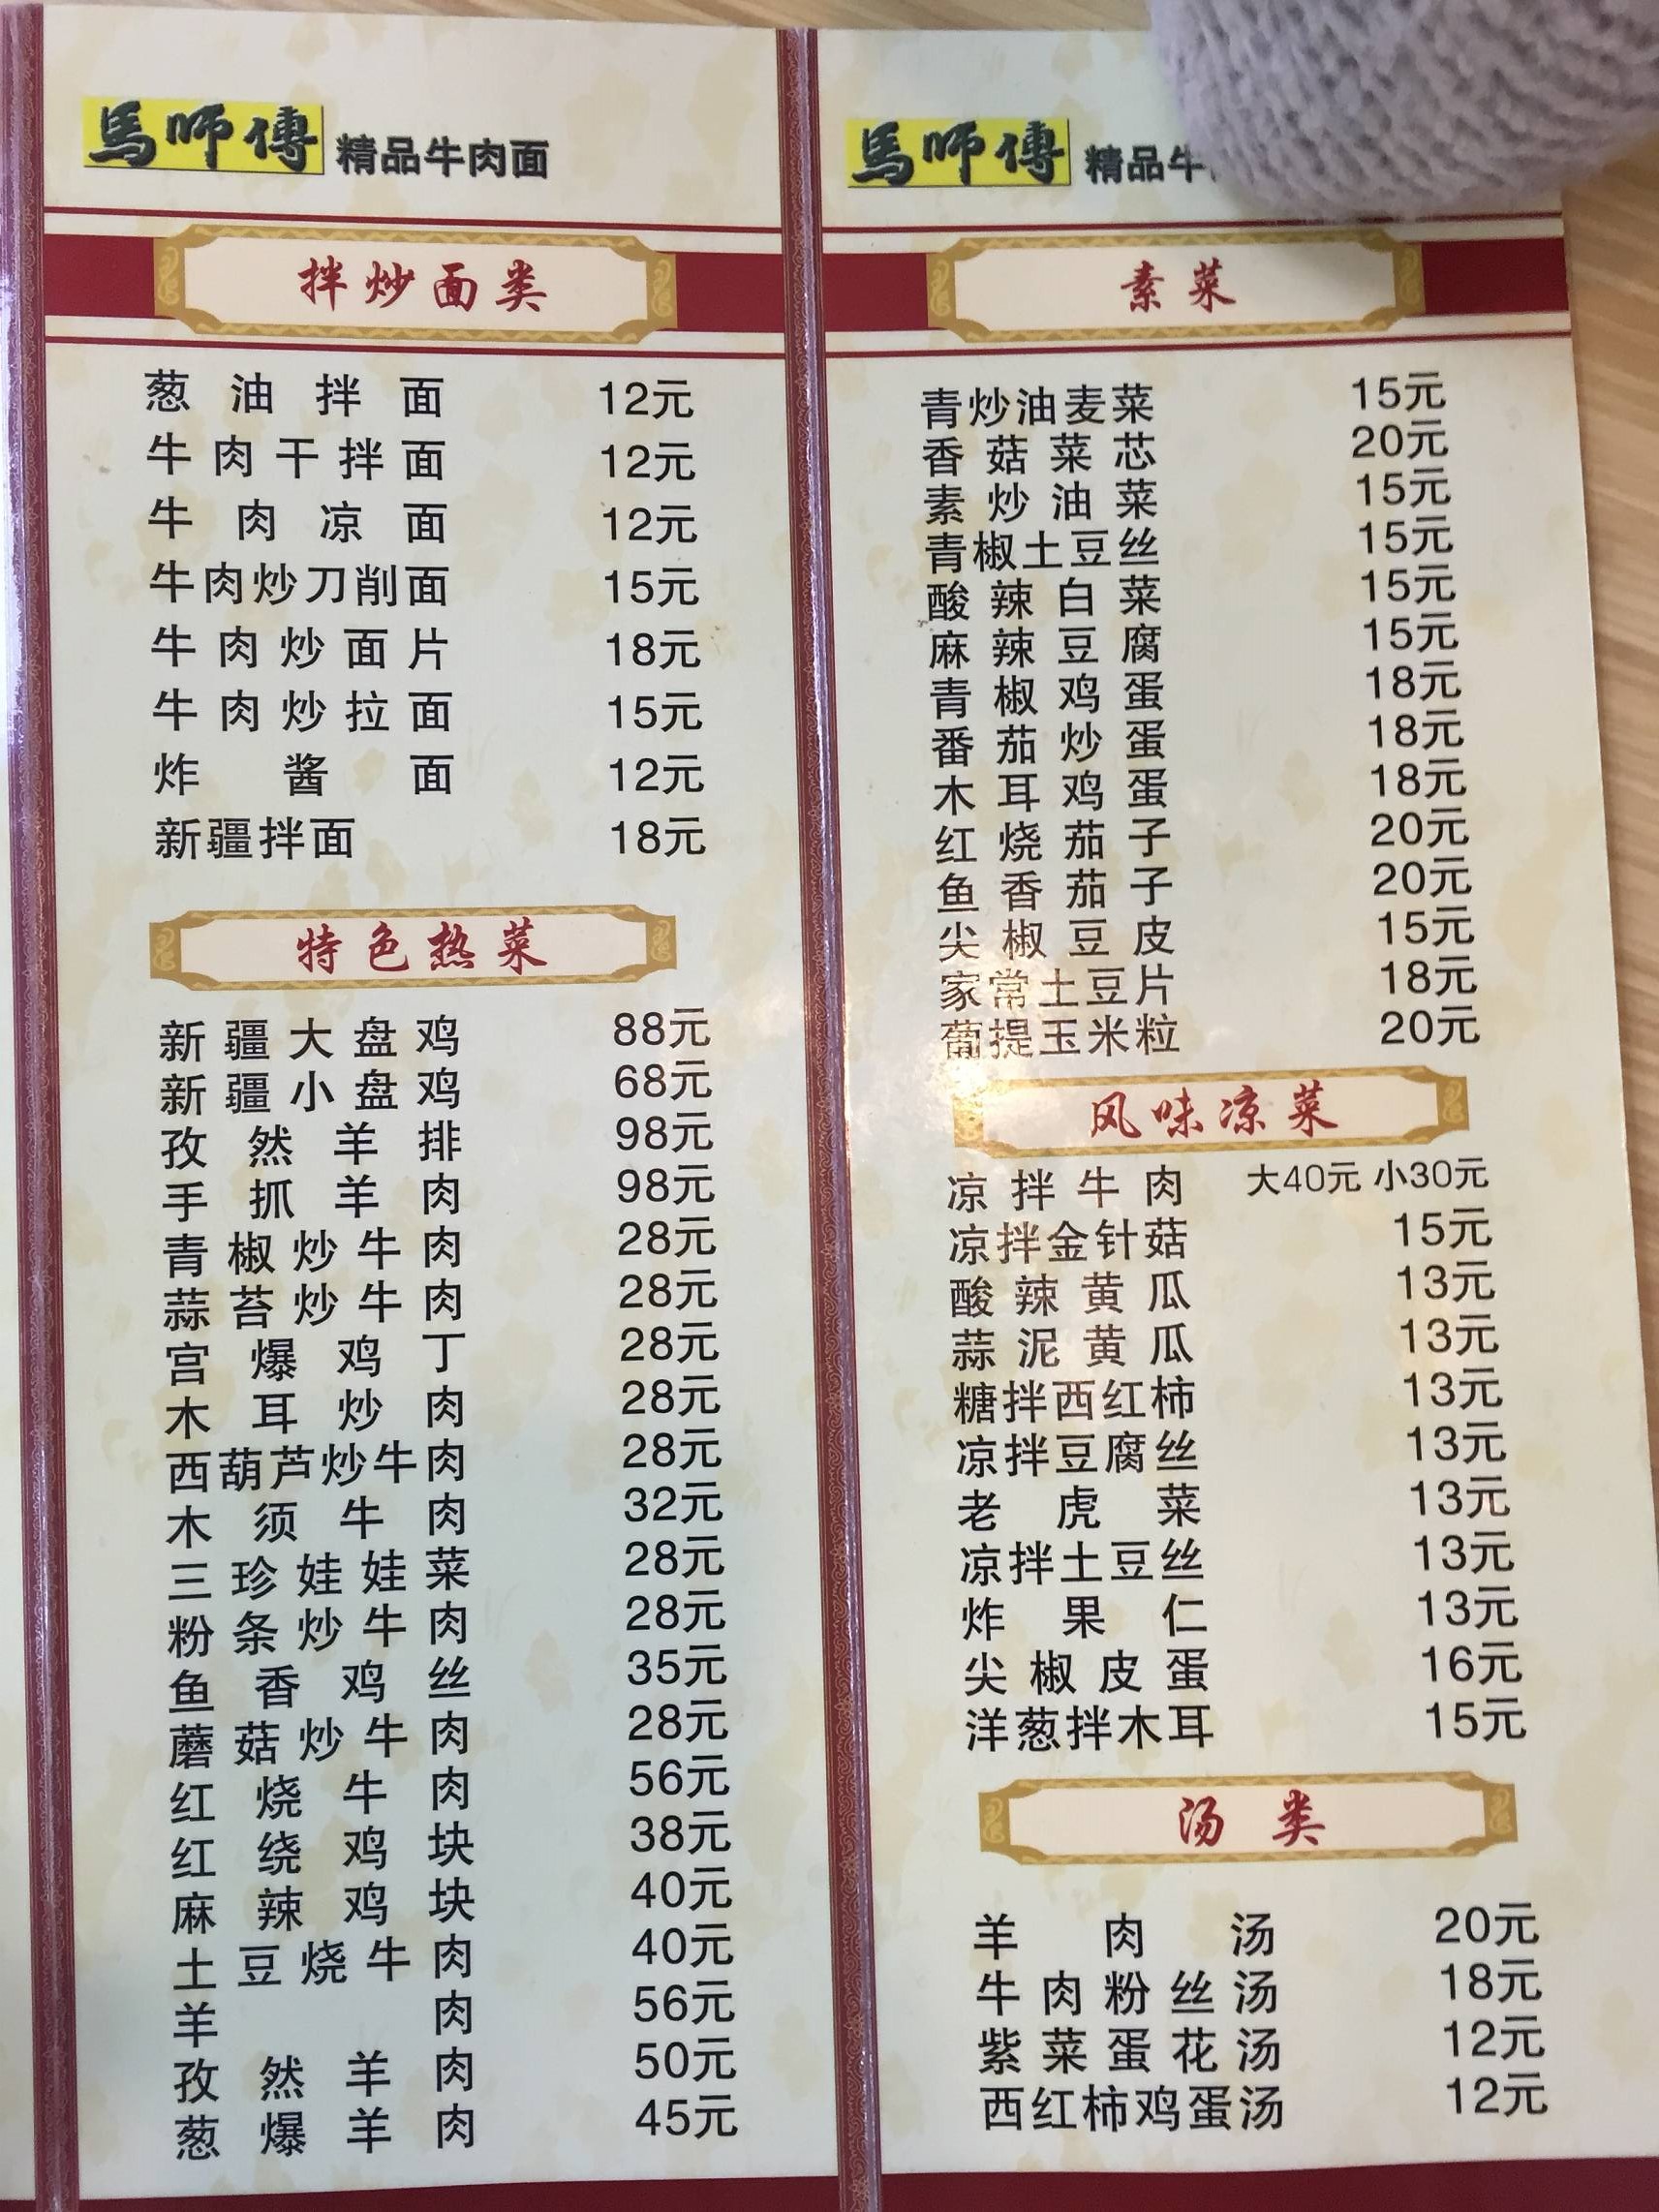 馬師傅 精品牛肉面
拌炒面类
葱油拌面 12元
牛肉干拌面 12元
牛肉凉面 12元
牛肉炒刀削面 15元
牛肉炒面片 18元
牛肉炒拉面 15元
炸酱面 12元
新疆拌面 18元
特色热菜
新疆大盘鸡 88元
新疆小盘鸡 68元
孜然羊排 98元
手抓羊肉 98元
青椒炒牛肉 28元
蒜苔炒牛肉 28元
宫爆鸡丁 28元
木耳炒肉 28元
西葫芦炒牛肉 28元
木须牛肉 32元
三珍娃娃菜 28元
粉条炒牛肉 28元
鱼香鸡丝 35元
蘑菇炒牛肉 28元
红烧牛肉 56元
红绕鸡块 38元
麻辣鸡块 40元
土豆烧牛肉 40元
羊肉 56元
孜然羊肉 50元
葱爆羊肉 45元
馬師傅 精品牛
素菜
青炒油麦菜 15元
香菇菜芯 20元
素炒油菜 15元
青椒土豆丝 15元
酸辣白菜 15元
麻辣豆腐 15元
青椒鸡蛋 18元
番茄炒蛋 18元
木耳鸡蛋 18元
红烧茄子 20元
鱼香茄子 20元
尖椒豆皮 15元
家常土豆片 18元
葡提玉米粒 20元
风味凉菜
凉拌牛肉 大40元 小30元
凉拌金针菇 15元
酸辣黄瓜 13元
蒜泥黄瓜 13元
糖拌西红柿 13元
凉拌豆腐丝 13元
老虎菜 13元
凉拌土豆丝 13元
炸果仁 13元
尖椒皮蛋 16元
洋葱拌木耳 15元
汤类
羊肉汤 20元
牛肉粉丝汤 18元
紫菜蛋花汤 12元
西红柿鸡蛋汤 12元